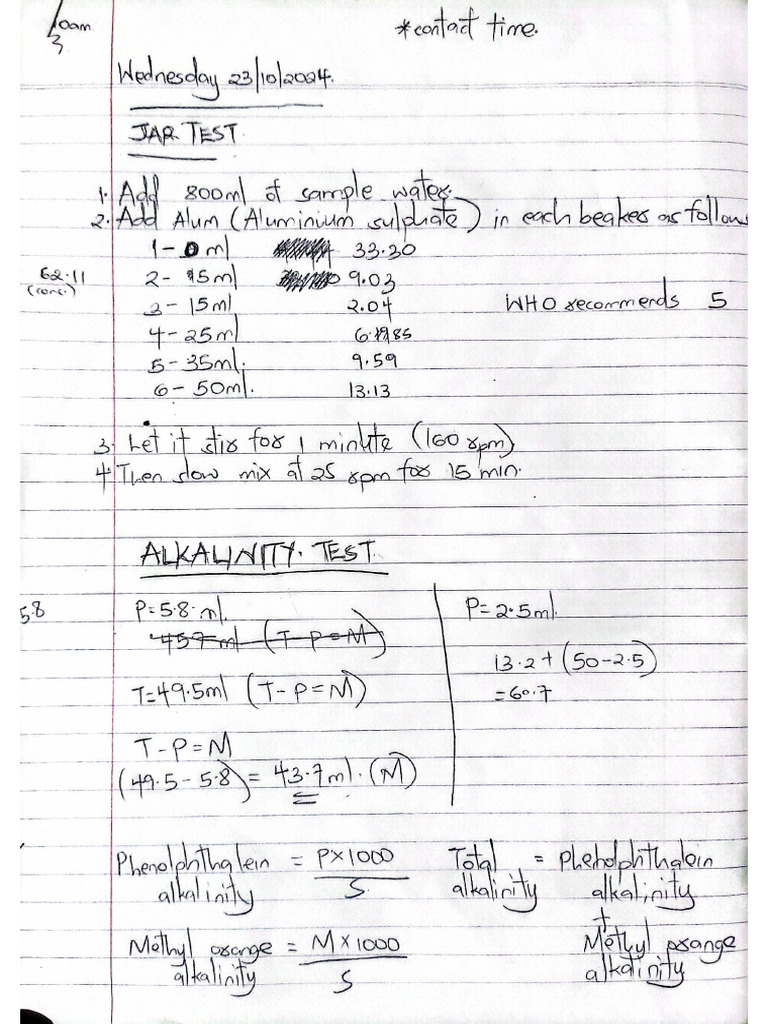 10am
3
*contact time.
Wednesday 23/10/2024.
JAR TEST.
1. Add 800ml of sample water.
2. Add Alum (Aluminium sulphate) in each beaker as follows
1 - 0 ml 33.30
62.11 (conc.) 2 - 5ml 9.03
3 - 15ml 2.04 WHO recommends 5
4 - 25ml 6.85
5 - 35ml. 9.59
6 - 50ml. 13.13
3. Let it stir for 1 minute (160 rpm)
4. Then slow mix at 25 rpm for 15 min.
ALKALINITY. TEST.
5.8 P = 5.8 ml.
457 ml (T - P = M)
T = 49.5ml (T - P = M)
T - P = M
(49.5 - 5.8) = 43.7ml. (M)
P = 2.5ml.
13.2 + (50 - 2.5)
= 60.7
Phenolphthalein alkalinity = P x 1000 / S
Total alkalinity = Phenolphthalein alkalinity + Methyl orange alkalinity
Methyl orange alkalinity = M x 1000 / S